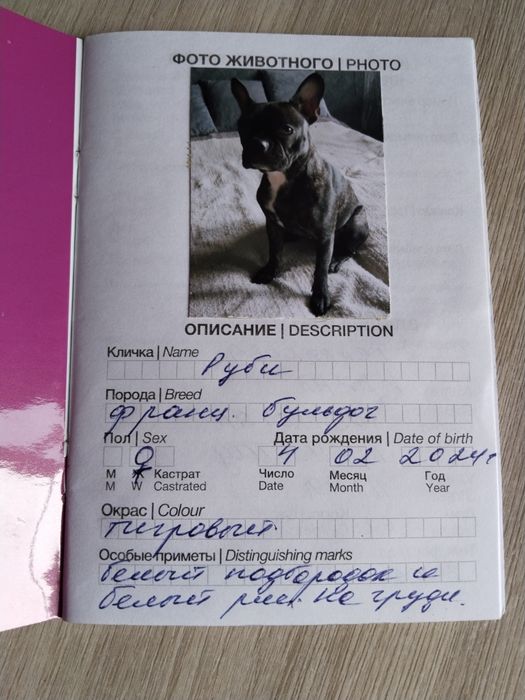 ФОТО ЖИВОТНОГО | PHOTO
ОПИСАНИЕ | DESCRIPTION
Кличка | Name
Руби
Порода | Breed
франц. бульдог
Пол | Sex Дата рождения | Date of birth
♀ 4 02 2024г
М Ж Кастрат Число Месяц Год
M W Castrated Date Month Year
Окрас | Colour
тигровый
Особые приметы | Distinguishing marks
белый подбородок и
белый рис. на груди.